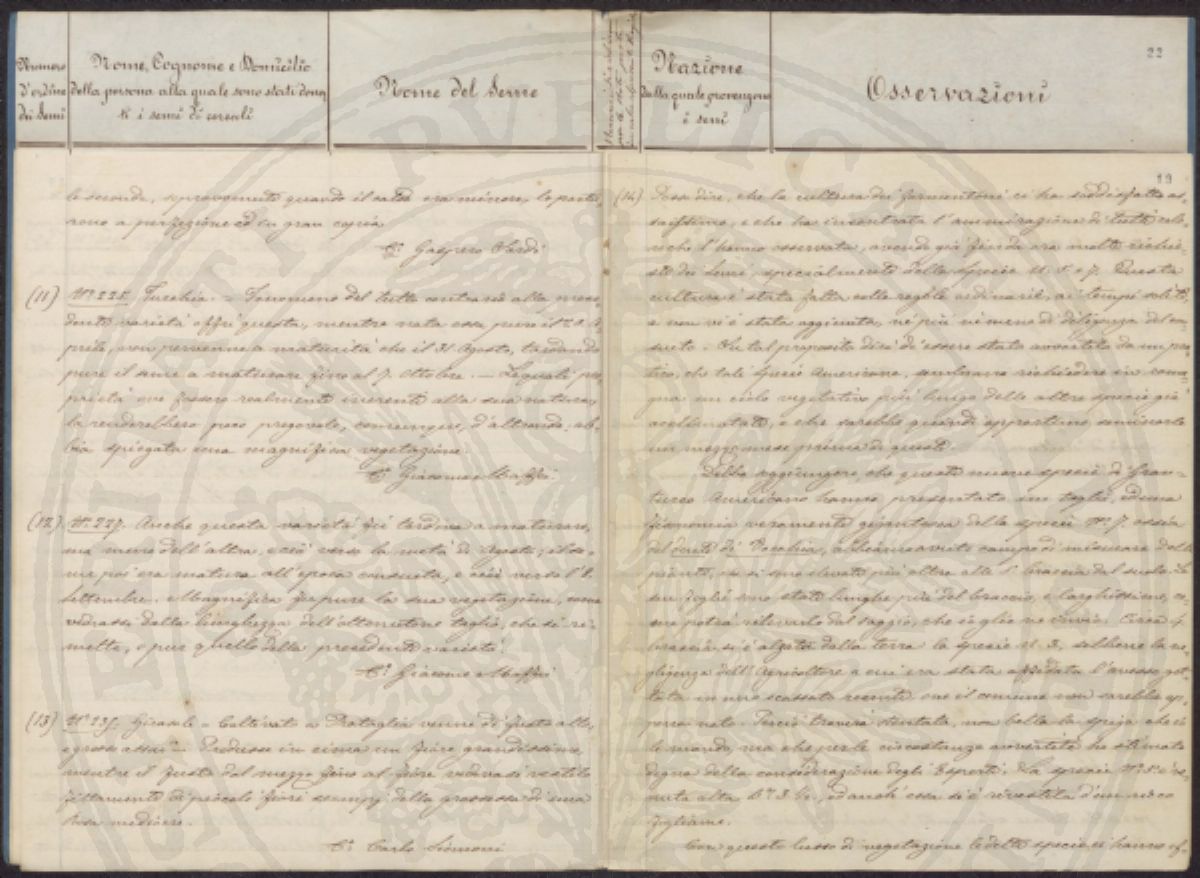 Numero
d'ordine
dei Semi
Nome, Cognome e Domicilio
della persona alla quale sono stati dona
ti i semi di cereali
Nome del Seme
Nazione
dalla quale provengono
i semi
Osservazioni
22
le seconde, quando il era minore, le porta
rono a perfezione ed in gran copia
Co. Gaspero
(11) N° 225. Turchia. = Fenomeno del tutto contrario alla prece
dente varietà offrì questa, mentre nata essa pure il 20 A
prile, non pervenne a maturità che il 31 Agosto, tardando
pure il seme a maturare fino al 7. Ottobre. — Le quali pro
prietà ove fossero realmente inerenti alla sua natura,
la renderebbero poco pregevole, comunque, d'altronde, ab
bia spiegata una magnifica vegetazione.
Co. Giacomo Maffei
(12) N° 227. Anche questa varietà fu tardiva a maturare,
ma meno dell'altra, e ciò verso la metà di Agosto; il se
me poi era maturo all'epoca consueta, e cioè verso l'8.
Settembre. Magnifica fu pure la sua vegetazione, come
vedrassi dalla lunghezza dell' foglio, che si ri
mette, e pur quello della precedente varietà.
Co. Giacomo Maffei
(13) N° 231. Girasole = Coltivato a Prataglia venne di fusto alto,
e grosso assai — Produsse in cima un fiore grandissimo,
mentre il fusto dal mezzo fino al fiore vedevasi vestito
fittamente di piccoli fiori della grossezza di una
Rosa mediocre.
Co. Carlo Siemoni
19
(14) Devo dire, che la cultura dei formentoni ci ha soddisfatto as
saissimo, e che ha incontrata l'ammirazione di tutti colo
ro che l'hanno osservata, avendo già fin da ora molte richie
ste dei semi, specialmente della specie N. 5. e 7. Questa
cultura è stata fatta colle regole ordinarie, ai tempi soliti,
e non vi è stata aggiunta, nè più nè meno di diligenza del con
sueto. Su tal proposito dirò di essere stato avvertito da un pra
tico, che tali specie Americane, sembrano richiedere in
un ciclo vegetativo più lungo delle altre specie già
e che sarebbe quindi opportuno seminarle
un mezzo mese prima di queste.
Debbo aggiungere, che queste nuove specie di Gran
turco Americano hanno presentato un foglio, ed una
fisonomia veramente gigantesca della specie N° 7. ossia
del dente di Vecchia, abbiamo avuto campo di misurare delle
piante, che si sono elevate più oltre alle braccia dal suolo. Le
sue foglie sono state lunghe più del braccio, e larghissime, co
me potrà rilevarlo dal saggio, che io glie ne invio. Circa 4
braccia si è alzata dalla terra la specie N. 3., sebbene la ne
gligenza dell'Agricoltore a cui era stata affidata l'avesse get
tata in uno scassato recente ove il comune non sarebbe ap
pena nato. Perciò troverà stentata, non bella la spiga che io
le mando, ma che per le circostanze avvertite ho stimata
degna della considerazione degli Esperti. La specie N° 5 è ve
nuta alta Ba 3 ½, ed anch'essa si è rivestita d'un ricco
fogliame.
Con questo lusso di vegetazione le dette specie ci hanno of